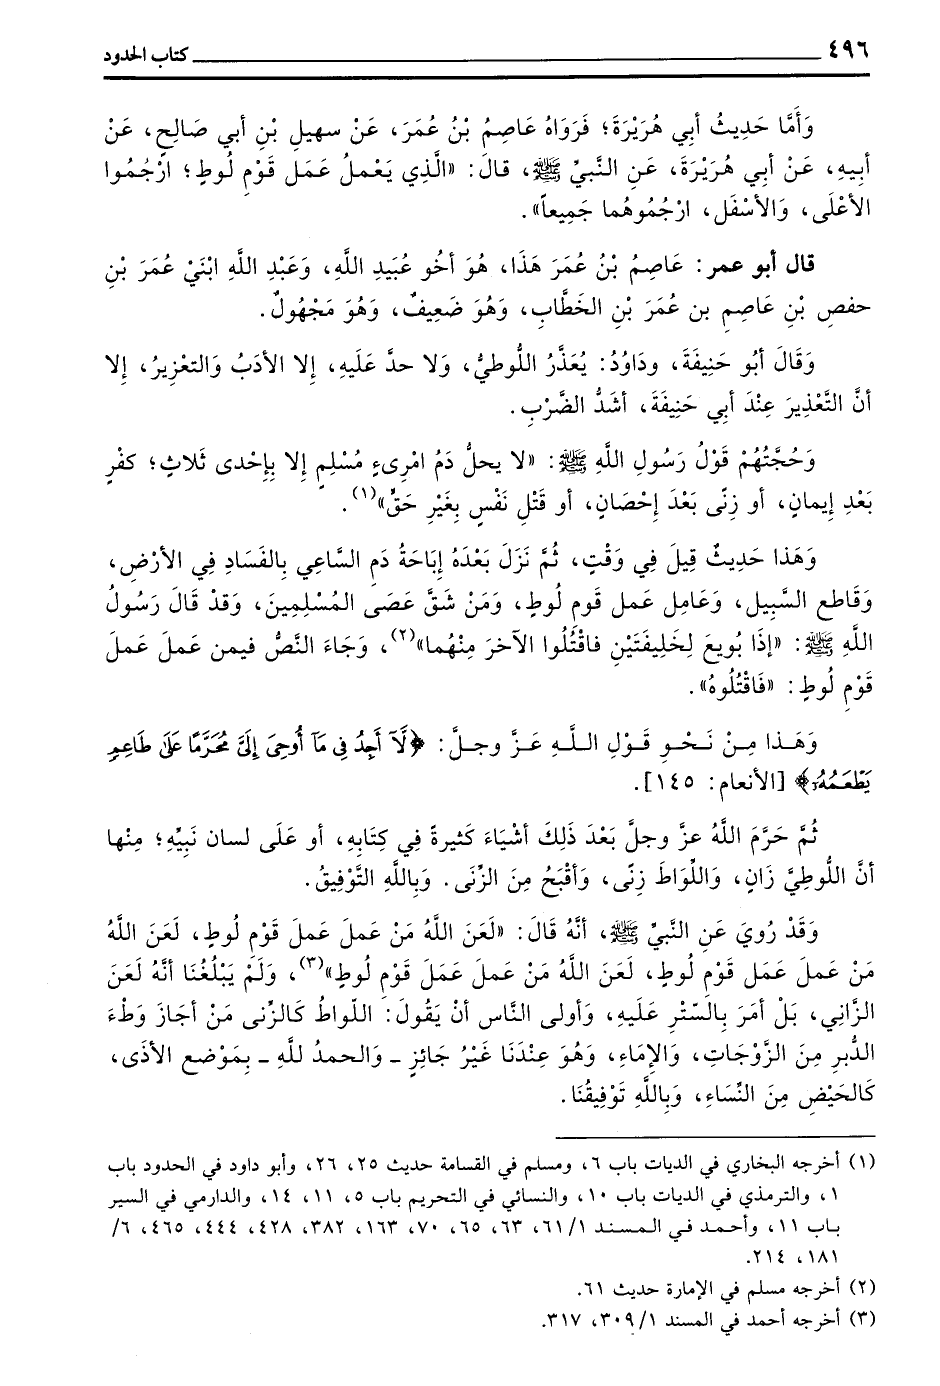 ٤٩٦ كتاب الحدود
وَأَمَّا حَدِيثُ أبِي هُرَيْرَةَ؛ فَرَوَاهُ عَاصِمُ بْنُ عُمَرَ، عَنْ سهيلِ بْنِ أبي صَالِحٍ، عَنْ
أبِيهِ، عَنْ أبِي هُرَيْرَةَ، عَنِ النَّبيِّ ﷺ، قالَ: «الَّذِي يَعْملُ عَمَل قَوْمِ لُوطٍ؛ ارْجُمُوا
الأعْلَى، وَالأسْفَل، ارْجُمُوهُما جَمِيعاً».
قال أبو عمر: عَاصِمُ بْنُ عُمَرَ هَذَا، هُوَ أخُو عُبَيدِ اللَّهِ، وَعَبْدِ اللَّهِ ابْنَيْ عُمَرَ بْنِ
حفصِ بْنِ عَاصِمِ بن عُمَرَ بْنِ الخَطَّابِ، وَهُوَ ضَعِيفٌ، وَهُوَ مَجْهُولٌ.
وَقَالَ أبُو حَنِيفَةَ، ودَاوُدُ: يُعَذَّرُ اللُّوطيُّ، وَلا حدَّ عَلَيهِ، إلا الأدَبُ وَالتعْزِيرُ، إلا
أنَّ التَّعْذِيرَ عِنْدَ أبي حَنِيفَةَ، أشَدُّ الضَّرْبِ.
وَحُجَّتُهُمْ قَوْلُ رَسُولِ اللَّهِ ﷺ: «لا يحلُّ دَمُ امْرِىءٍ مُسْلِمٍ إلا بِإِحْدى ثَلاثٍ؛ كفْرٍ
بَعْدِ إيمانٍ، أو زِنًى بَعْدَ إحْصَانٍ، أو قَتْلِ نَفْسٍ بِغَيْرِ حَقٍّ»(١).
وَهَذا حَدِيثٌ قِيلَ فِي وَقْتٍ، ثُمَّ نَزَلَ بَعْدَهُ إبَاحَةُ دَمِ السَّاعِي بِالفَسَادِ فِي الأرْضِ،
وَقَاطع السَّبِيلِ، وَعَامِلِ عَمل قَومِ لُوطٍ، وَمَنْ شَقَّ عَصَى المُسْلِمِينَ، وَقدْ قَالَ رَسُولُ
اللَّهِ ﷺ: «إذَا بُويعَ لِخَلِيفَتَيْنِ فاقْتُلُوا الآخرَ مِنْهُما»(٢)، وَجَاءَ النَّصُّ فيمن عَملَ عَملَ
قَوْمِ لُوطٍ: «فَاقْتُلُوهُ».
وَهَذا مِنْ نَحْوِ قَوْلِ اللَّهِ عَزَّ وجلَّ: ﴿لَّآ أَجِدُ فِى مَآ أُوحِىَ إِلَىَّ مُحَرَّمًا عَلَىٰ طَاعِمٍ
يَطْعَمُهُۥ﴾ [الأنعام: ١٤٥].
ثُمَّ حَرَّمَ اللَّهُ عزَّ وجلَّ بَعْدَ ذَلِكَ أشْيَاءَ كَثيرةً فِي كِتَابِهِ، أو عَلَى لسان نَبيِّهِ؛ مِنْها
أنَّ اللُّوطيَّ زَانٍ، وَاللِّوَاطَ زِنًى، وَأقْبَحُ مِنَ الزِّنَى. وَبِاللَّهِ التَّوْفِيقُ.
وَقَدْ رُوِيَ عَنِ النَّبيِّ ﷺ، أنَّهُ قَالَ: «لَعَنَ اللَّهُ مَنْ عَملَ عَملَ قَوْمِ لُوطٍ، لَعَنَ اللَّهُ
مَنْ عَملَ عَمَل قَوْمِ لُوطٍ، لَعَنَ اللَّهُ مَنْ عَملَ عَمَلَ قَوْمِ لُوطٍ»(٣)، وَلَمْ يَبْلُغْنَا أنَّهُ لَعَنَ
الزَّانِي، بَلْ أمَرَ بِالسّترِ عَلَيهِ، وَأولى النَّاس أنْ يَقُولَ: اللّواطُ كَالزِّنى مَنْ أجَازَ وَطْءَ
الدُّبرِ مِنَ الزَّوْجَاتِ، وَالإمَاءِ، وَهُوَ عِنْدَنَا غَيْرُ جَائِزٍ ـ وَالحمدُ للَّهِ ـ بِمَوْضع الأذَى،
كَالحَيْضِ مِنَ النِّسَاءِ، وَبِاللَّهِ تَوْفِيقُنَا.
(١) أخرجه البخاري في الديات باب ٦، ومسلم في القسامة حديث ٢٥، ٢٦، وأبو داود في الحدود باب
١، والترمذي في الديات باب ١٠، والنسائي في التحريم باب ٥، ١١، ١٤، والدارمي في السير
باب ١١، وأحمد في المسند ١/ ٦١، ٦٣، ٦٥، ٧٠، ١٦٣، ٣٨٢، ٤٢٨، ٤٤٤، ٤٦٥، ٦/
١٨١، ٢١٤.
(٢) أخرجه مسلم في الإمارة حديث ٦١.
(٣) أخرجه أحمد في المسند ١/ ٣٠٩، ٣١٧.